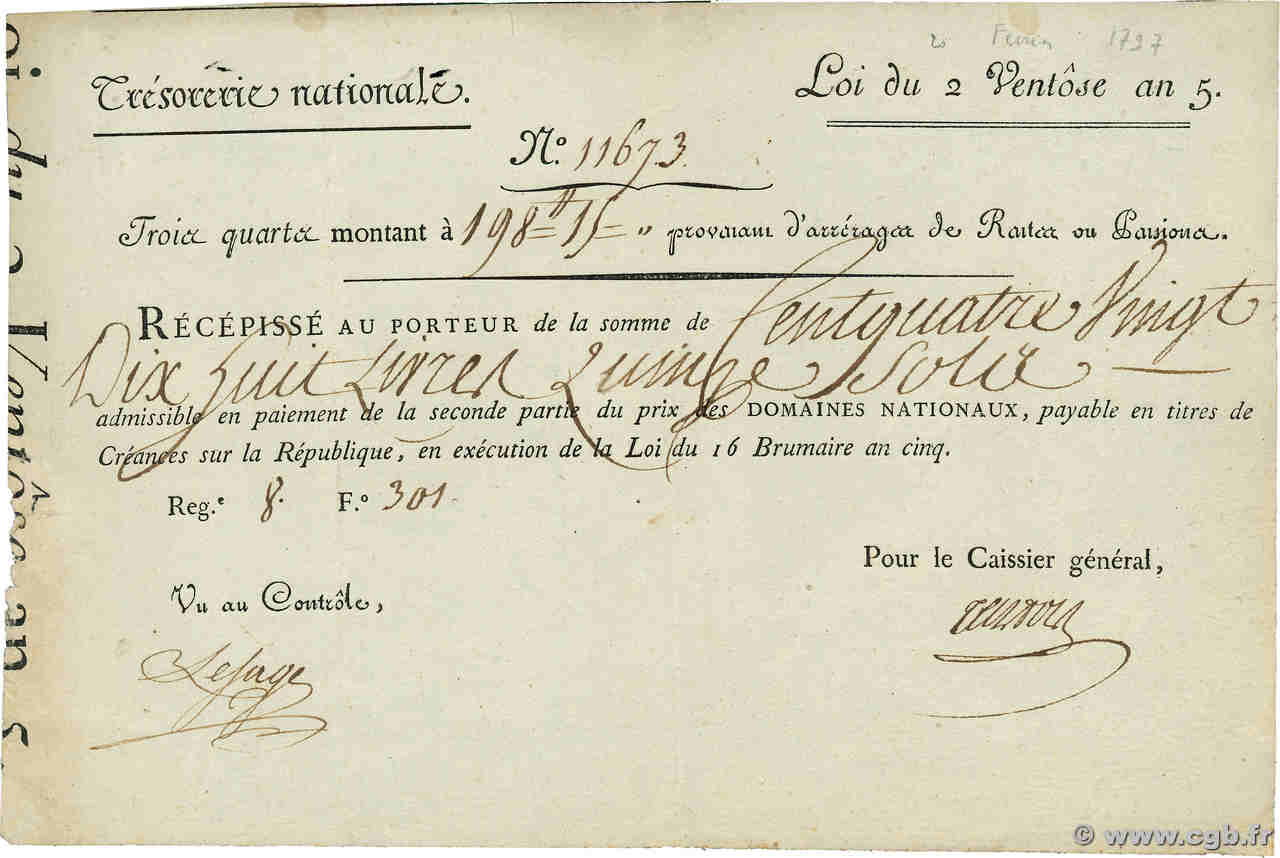 20 Fevrier 1797
Trésorerie nationale.
Loi du 2 Ventôse an 5.
N.º 11673.
Trois quarts montant à 198 ₶ 15 = " provenant d'arrérages de Rentes ou Pensions.
RÉCÉPISSÉ AU PORTEUR de la somme de Cent quatre Vingt
Dix huit Livres Quinze Sols
admissible en paiement de la seconde partie du prix des DOMAINES NATIONAUX, payable en titres de
Créances sur la République, en exécution de la Loi du 16 Brumaire an cinq.
Reg.e 8. F.º 301.
Pour le Caissier général,
Vu au Contrôle,
Lesage
© www.cgb.fr